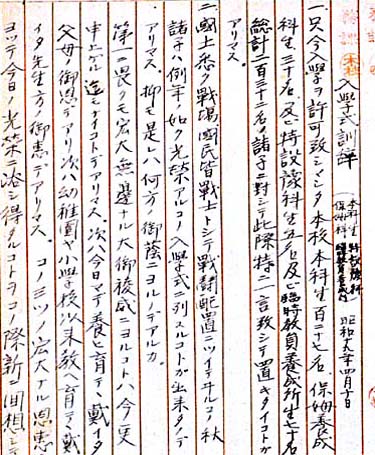 入学式訓辞
本科生 特設豫科
保姆科 臨時教員養成所
昭和十九年四月十日
一、只今入学ヲ許可致シマシタ本校本科生百二十七名、保姆養成
科生三十名、及ビ特設豫科生五名及ビ臨時教員養成所生七十名
総計二百三十二名ノ諸子ニ対シテ此際特ニ一言致シテ置キタイコトガ
アリマス。
二、国土悉ク戦場、国民皆戦士トシテ戦闘配置ニツイテヰルコノ秋
諸子ハ例年ノ如ク光栄アルコノ入学式ニ列スルコトガ出来タノデ
アリマス。抑モ是レハ何方ノ御蔭ニヨルノデアルカ。
第一ニ畏クモ宏大無邊ナル大御稜威ニヨルコトハ今更
申上ゲル迄モナイコトデアリマス。次ハ今日マデ養ヒ育テヽ戴イタ
父母ノ御恩デアリ次ハ幼稚園ヤ小学校以来教ヘ育テヽ戴
イタ先生方ノ御恵デアリマス。コノ三ツノ宏大ナル恩恵ニ
ヨッテ今日ノ光栄ニ浴シ得タルコトヲコノ際新ニ回想シテ